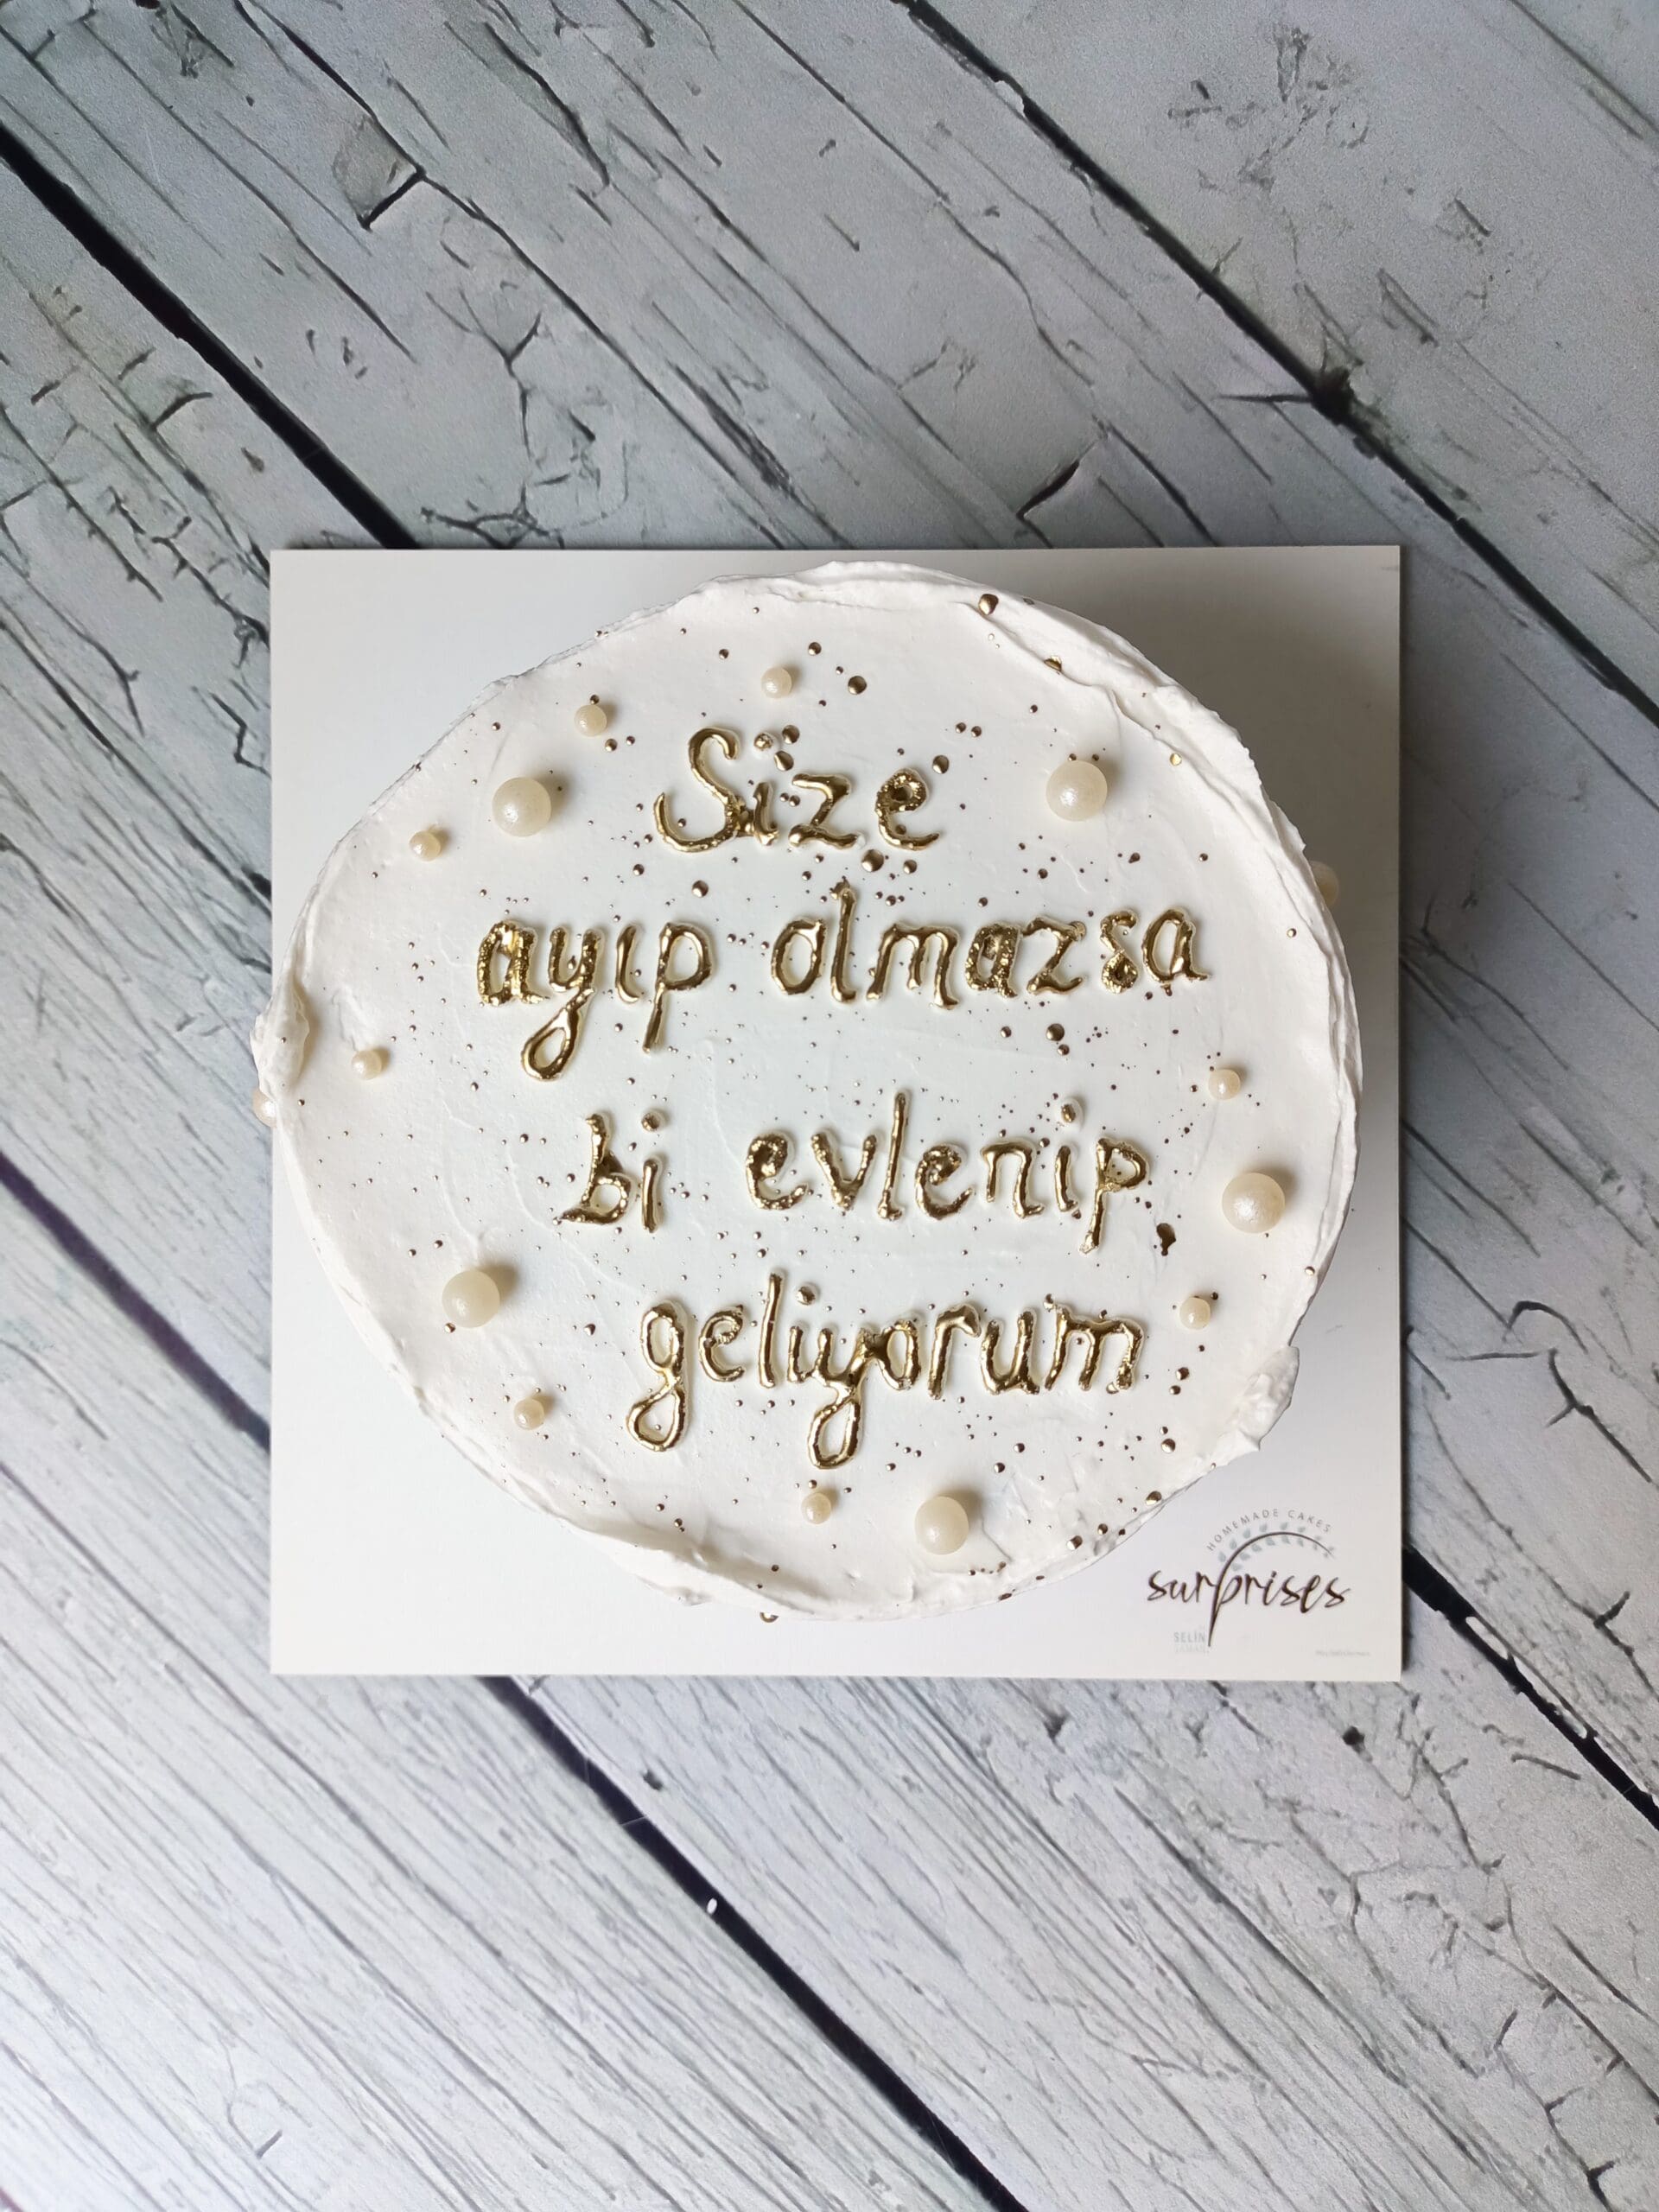 Size
ayıp olmazsa
bi evlenip
geliyorum
HOMEMADE CAKES
surprises
SELİN